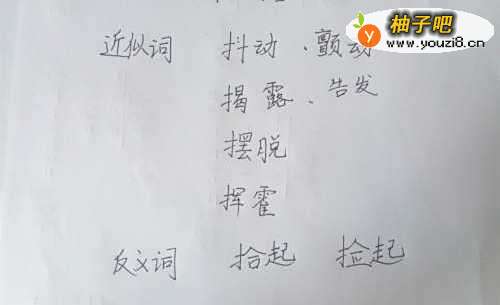 柚子吧
www.youzi8.cn
近似词 抖动、颤动
揭露、告发
摆脱
挥霍
反义词 拾起 捡起